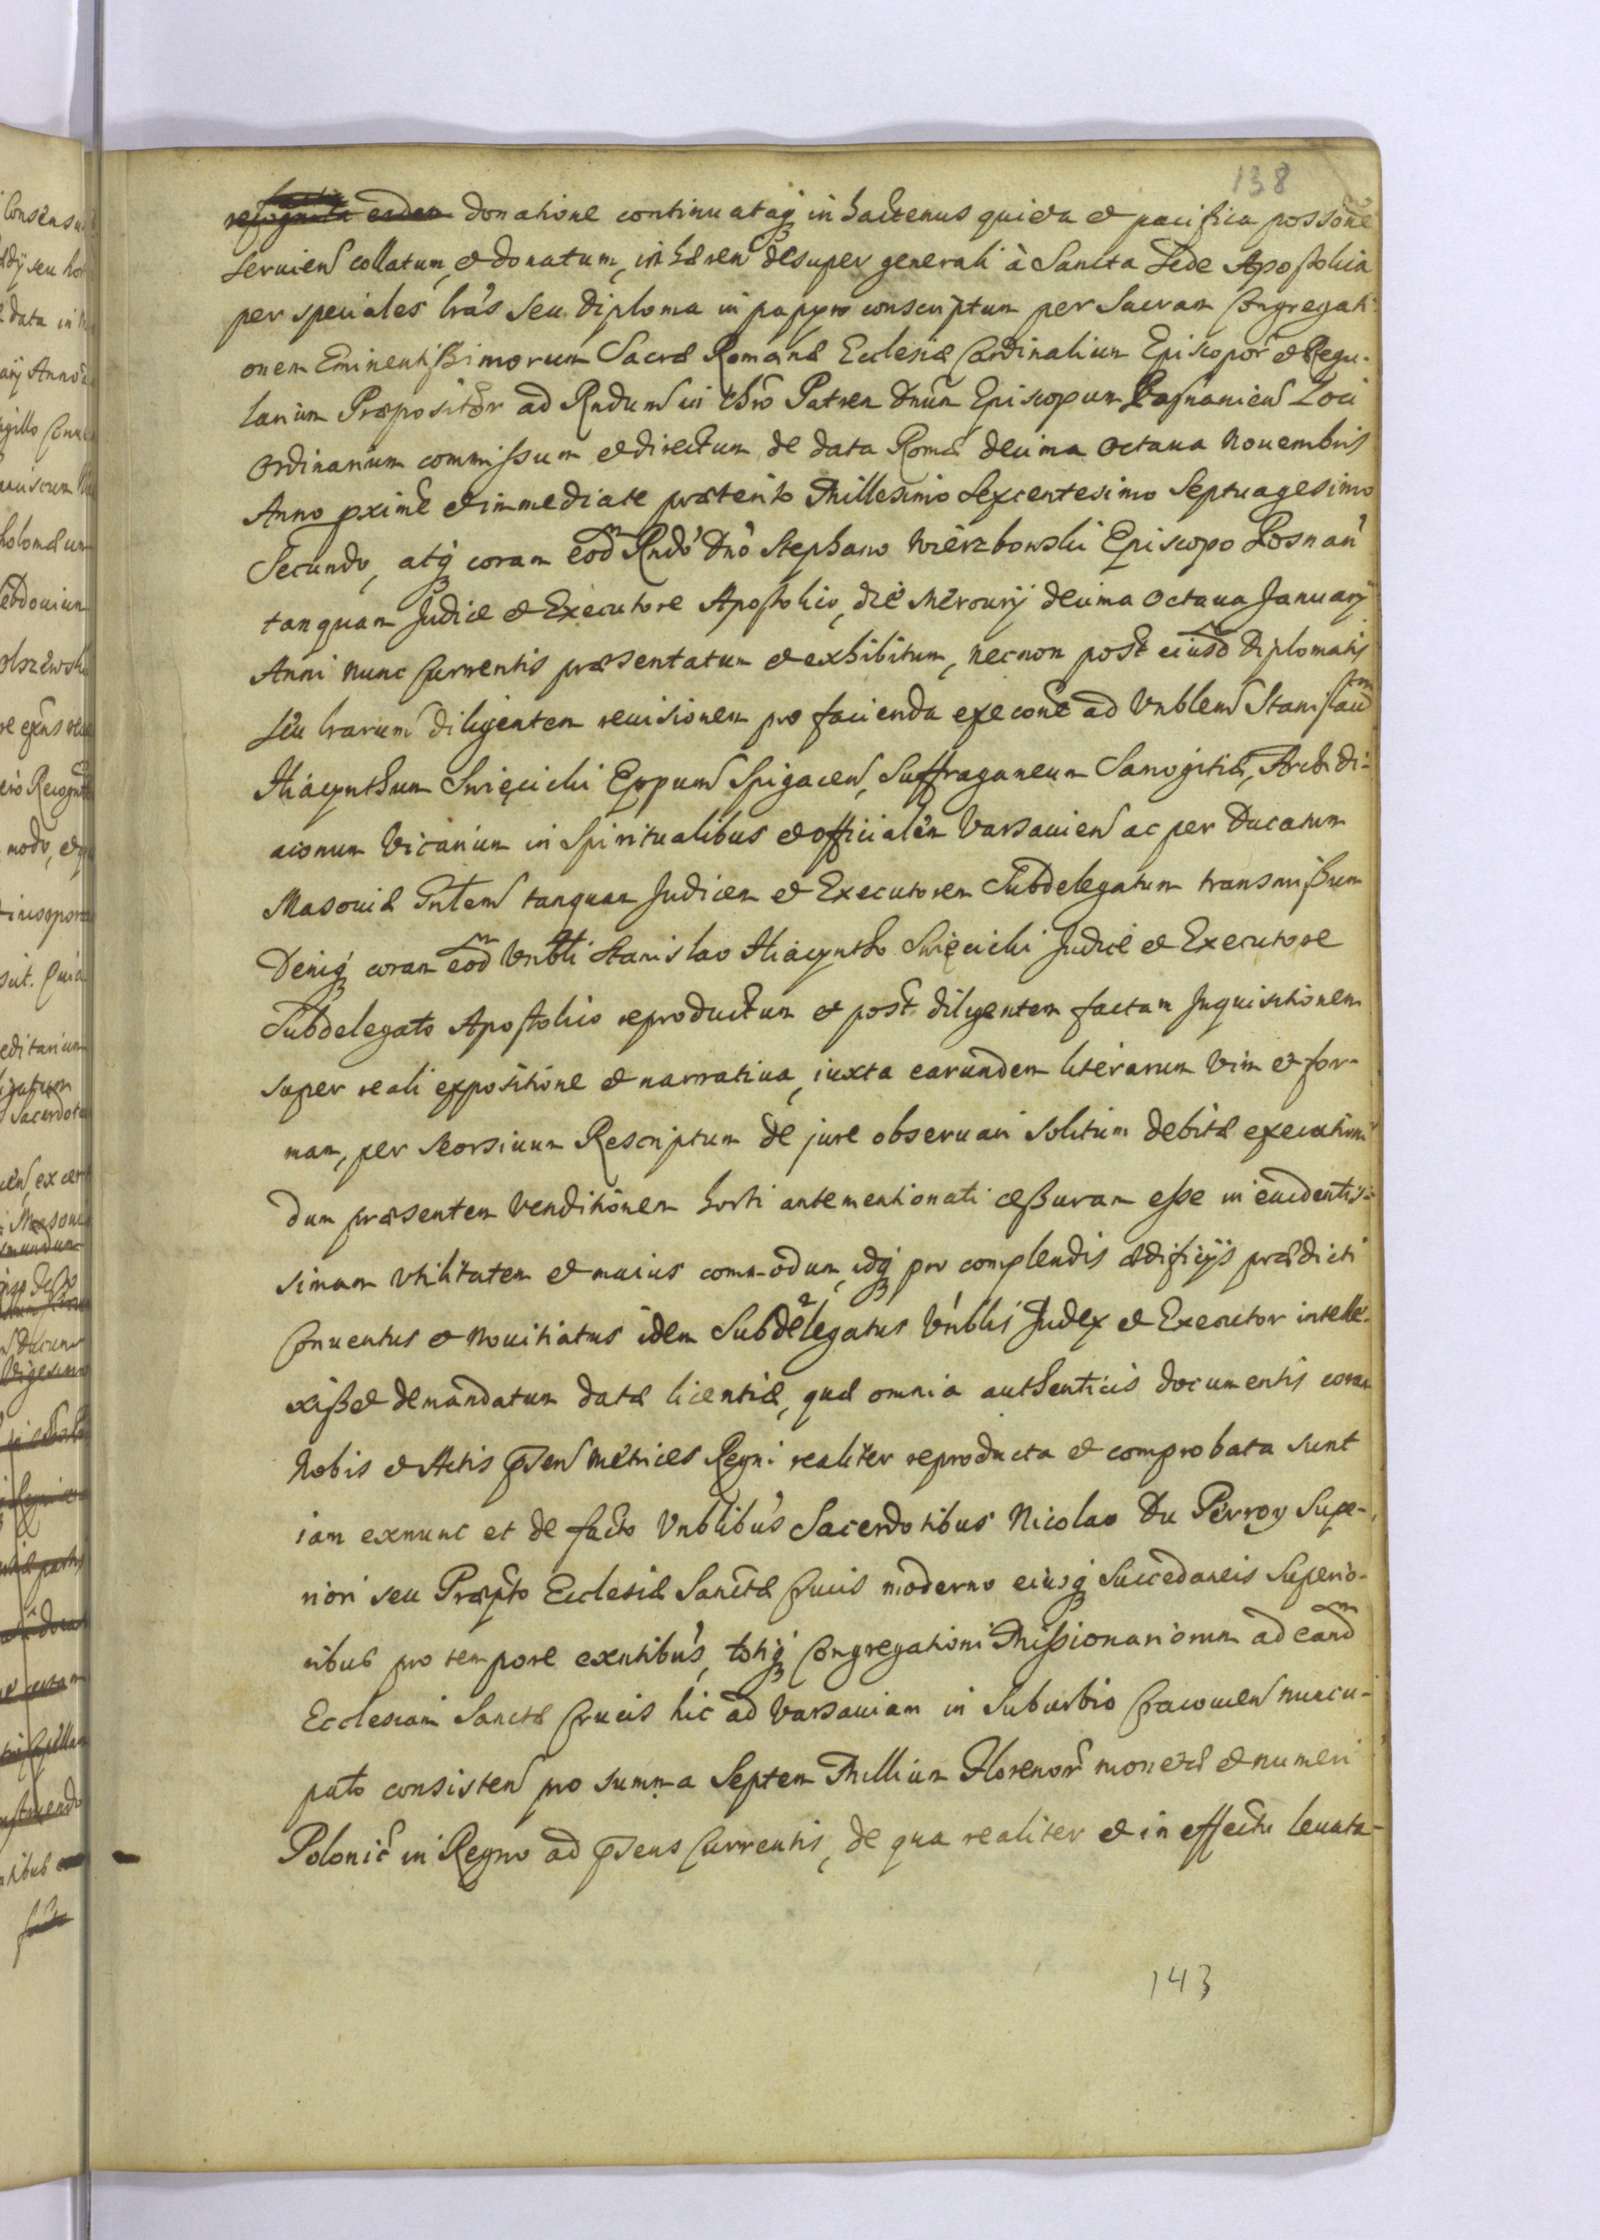 138
donatione continuataq in hactenus quieta et pacifica possone
servien collatum, et donatum, inhæren desuper generali à Sancta Sede Apostolica
per speciales lras seu diploma in papyro conscriptum per Sacram Congregati
onem Eminentissimorum Sacræ Romanæ Ecclesiæ Cardinalium Episcopor et Regu-
larium Præpositor ad Rndum in Chro Patrem Dnum Episcopum Posnanien Loci
Ordinarium commissum et directum de data Romæ decima Octava Novembris
Anno pxime et immediate præterito Millesimo Sexcentesimo Septuagesimo
Secundo, atq coram eodm Rndo Dno Stephano Wierzbowski Episcopo Posnan
tanquam Judice et Executore Apostolico, die Mercurij decima Octava January
Anni nunc Currentis præsentatum et exhibitum, necnon post eiusd Diplomatis
seu lrarum diligentem revisionem pro facienda execone ad Vnblem Stanislaum
Hiacynthum Swięcicki Eppum Spigacen, Suffraganeum Samogitiæ, Archidi-
aconum Vicarium in Spiritualibus et officialem Varsavien ac per Ducatum
Masoviæ Gnlem tanquam Judicem et Executorem Subdelegatum transmissum
Deniq coram eodm Vnbli Stanislao Hiacyntho Swięcicki Judice et Executore
Subdelegato Apostolico reproductum et post diligentem factam Inquisitionem
super reali expositione et narrativa, iuxta earundem literarum vim et for-
mam, per seorsivum Rescriptum de jure observari solitum debitæ executioni
dum præsentem venditionem horti antementionati cessuram esse in evidentis-
simam utilitatem et maius commodum, idq pro complendis ædificijs prædicti
Conventus et Novitiatus idem Subdelegatus Vnblis Judex et Executor intelle-
xisset demandatum datæ licentiæ, quæ omnia authenticis documentis coram
Nobis et Actis psen Metrices Regni realiter reproducta et comprobata sunt
iam exnunc et de facto Vnblibus Sacerdotibus Nicolao Du Perroy Supe-
riori seu Præpto Ecclesiæ Sanctæ Crucis moderno eiusq Succedaneis Superio-
ribus pro tempore exntibus, totiq Congregationi Missionariorum ad eandm
Ecclesiam Sanctæ Crucis hic ad Varsaviam in Suburbio Cracovien nuncu-
pato consisten pro summa Septem Millium Florenor monetæ et numeri
Polonic in Regno ad psens Currentis, de qua realiter et in effectu levata-
143